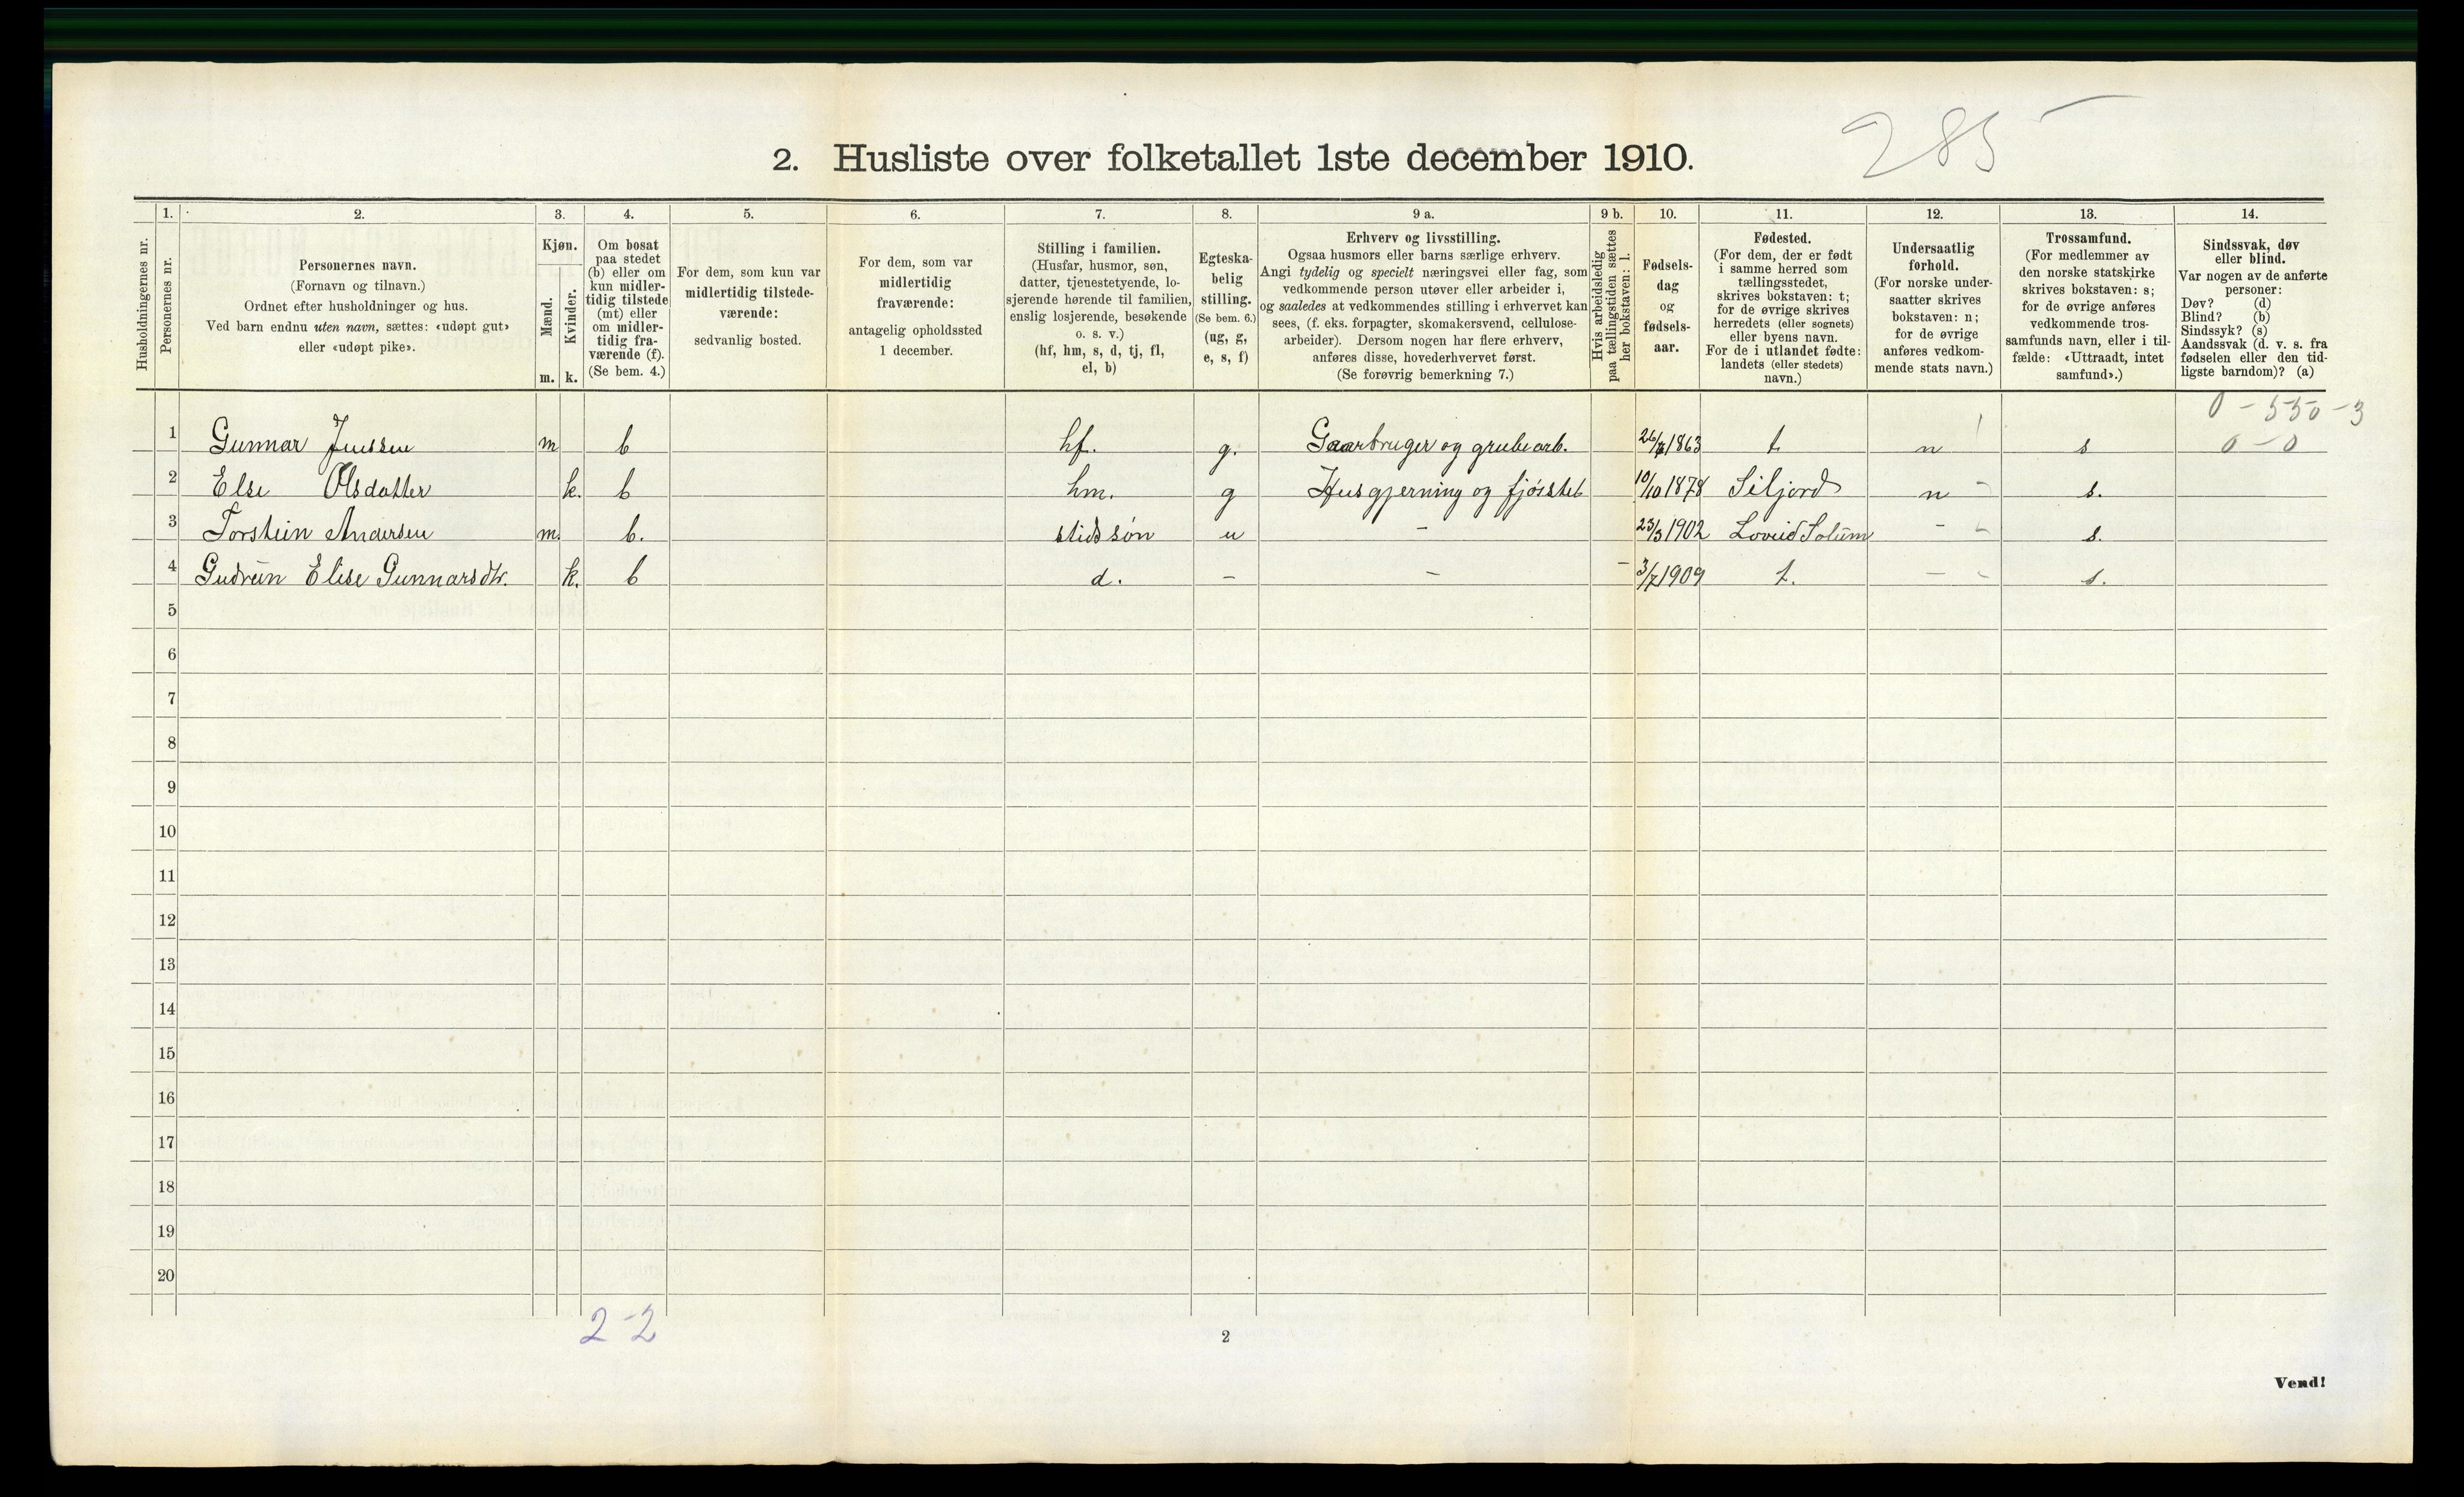 285
2. Husliste over folketallet 1ste december 1910.
Husholdningernes nr.
1.
Personernes nr.
2.
Personernes navn.
(Fornavn og tilnavn.)
Ordnet efter husholdninger og hus.
Ved barn endnu uten navn, sættes: «udøpt gut»
eller «udøpt pike».
3.
Kjøn.
Mænd.
Kvinder.
m. k.
4.
Om bosat
paa stedet
(b) eller om
kun midler-
tidig tilstede
(mt) eller
om midler-
tidig fra-
værende (f).
(Se bem. 4.)
5.
For dem, som kun var
midlertidig tilstede-
værende:
sedvanlig bosted.
6.
For dem, som var
midlertidig
fraværende:
antagelig opholdssted
1 december.
7.
Stilling i familien.
(Husfar, husmor, søn,
datter, tjenestetyende, lo-
sjerende hørende til familien,
enslig losjerende, besøkende
o. s. v.)
(hf, hm, s, d, tj, fl,
el, b)
8.
Egteska-
belig
stilling.
(Se bem. 6.)
(ug, g,
e, s, f)
9 a.
Erhverv og livsstilling.
Ogsaa husmors eller barns særlige erhverv.
Angi tydelig og specielt næringsvei eller fag, som
vedkommende person utøver eller arbeider i,
og saaledes at vedkommendes stilling i erhvervet kan
sees, (f. eks. forpagter, skomakersvend, cellulose-
arbeider). Dersom nogen har flere erhverv,
anføres disse, hovederhvervet først.
(Se forøvrig bemerkning 7.)
9 b.
Hvis arbeidsledig
paa tællingstiden sættes
her bokstaven: l.
10.
Fødsels-
dag
og
fødsels-
aar.
11.
Fødested.
(For dem, der er født
i samme herred som
tællingsstedet,
skrives bokstaven: t;
for de øvrige skrives
herredets (eller sognets)
eller byens navn.
For de i utlandet fødte:
landets (eller stedets)
navn.)
12.
Undersaatlig
forhold.
(For norske under-
saatter skrives
bokstaven: n;
for de øvrige
anføres vedkom-
mende stats navn.)
13.
Trossamfund.
(For medlemmer av
den norske statskirke
skrives bokstaven: s;
for de øvrige anføres
vedkommende tros-
samfunds navn, eller i til-
fælde: «Uttraadt, intet
samfund».)
14.
Sindssvak, døv
eller blind.
Var nogen av de anførte
personer:
Døv? (d)
Blind? (b)
Sindssyk? (s)
Aandssvak (d. v. s. fra
fødselen eller den tid-
ligste barndom)? (a)
0 - 550 - 3
1 Gunnar Jenssen m b hf. g. Gaarbruger og grubearb. 1863 t n s 0 - 0
2 Else Olsdatter k. b hm. g Husgjerning og fjøsstel 10/10 1878 Siljord n - s.
3 Torstein Andersen m. b. stidssøn u - 23/3 1902 Loveid Solum - - s.
4 Gudrun Elise Gunnarsdtr. k. b d. - - - 3/7 1909 t. - - s.
5
6
7
8
9
10
11
12
13
14
15
16
17
18
19
20
2-2
2
Vend!